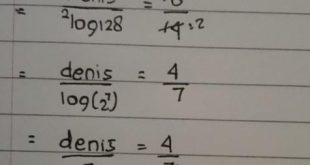 = ²log128 = 14:2
= denis / log(2⁷) = 4/7
= denis = 4